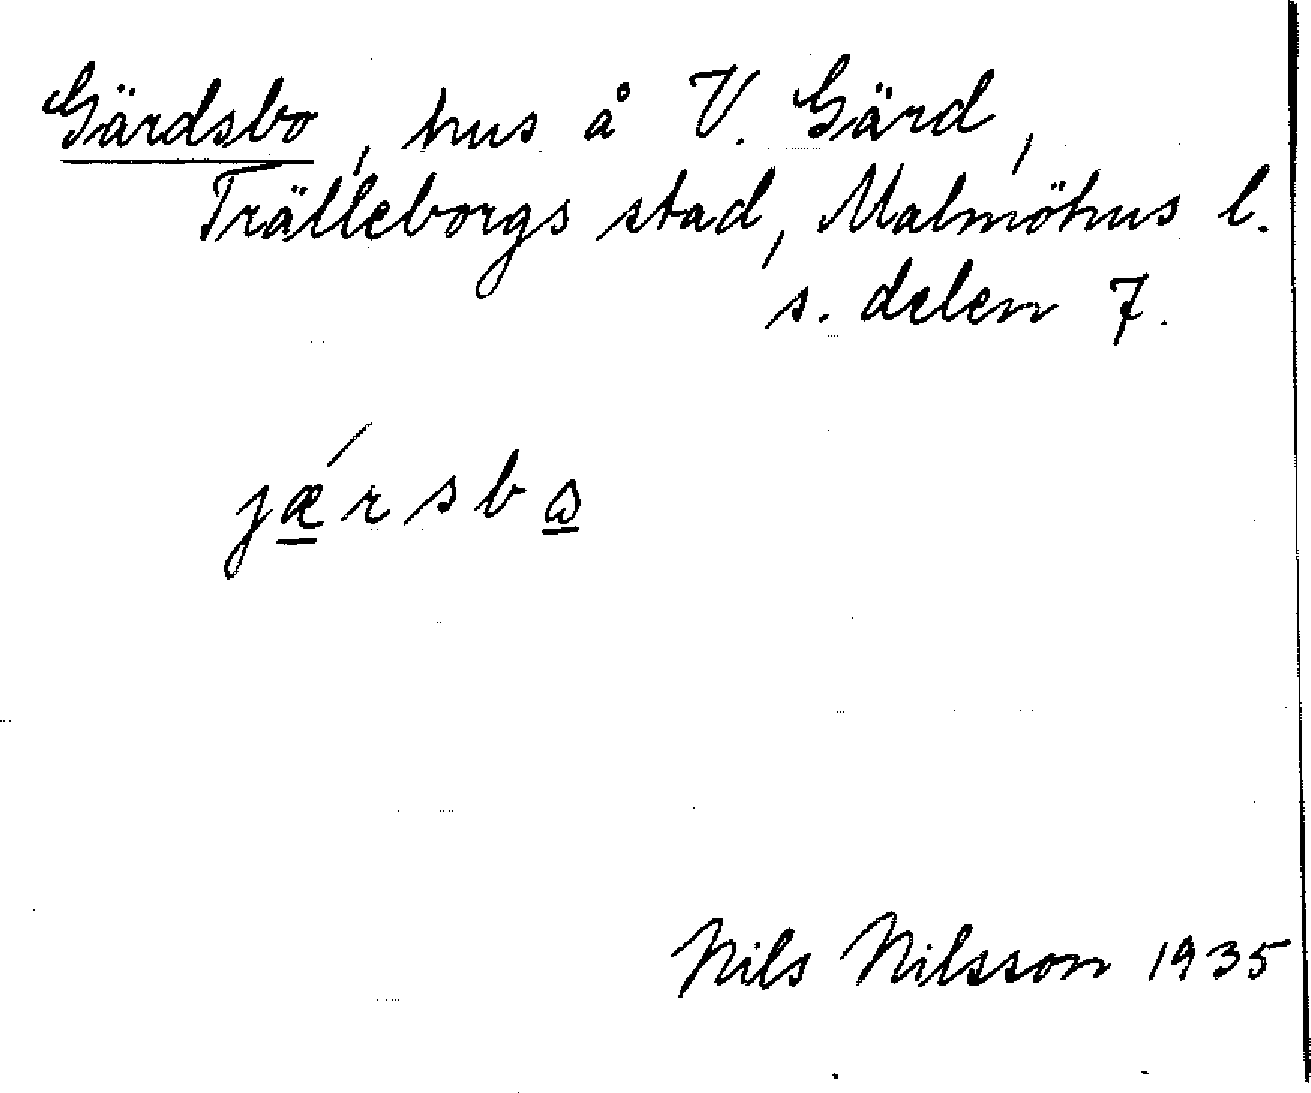 Gärdsbo, hus å V. Gärd,
Trälleborgs stad, Malmöhus l.
s. delen 7.
jǽrsbɷ
Nils Nilsson 1935